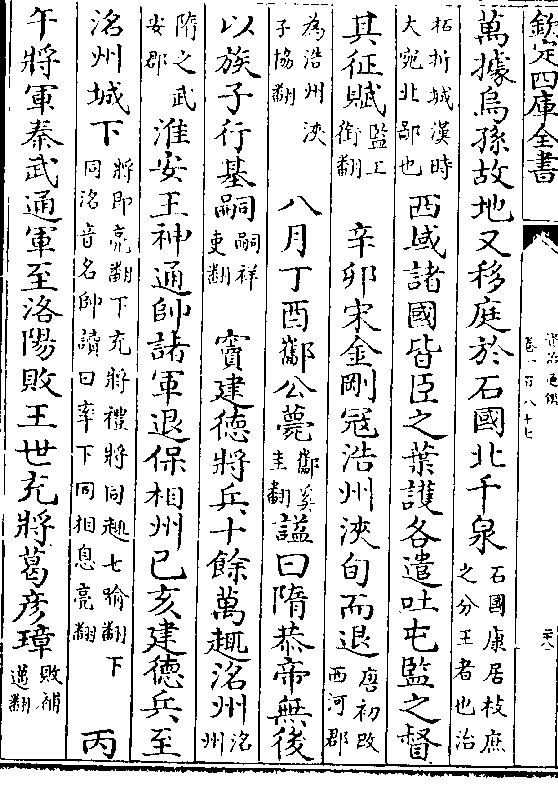 欽定四庫全書
資治通鑑
卷一百八十七
萬據烏孫故地又移庭於石國北千泉石國康居枝庶之分王者也治
柘折城漢時大宛北鄙也西域諸國皆臣之葉護各遣吐屯監之督
其征賦監工銜翻辛卯宋金剛冦浩州浹旬而退唐初改西河郡
為浩州浹子協翻八月丁酉酅公薨酅奚圭翻諡曰隋恭帝無後
以族子行基嗣嗣祥吏翻竇建德將兵十餘萬趣洺州洺州
隋之武安郡淮安王神通帥諸軍退保相州己亥建德兵至
洺州城下將即亮翻下充將禮將同趣七喻翻下同洺音名帥讀曰率下同相息亮翻丙
午將軍秦武通軍至洛陽敗王世充將葛彦璋敗補邁翻